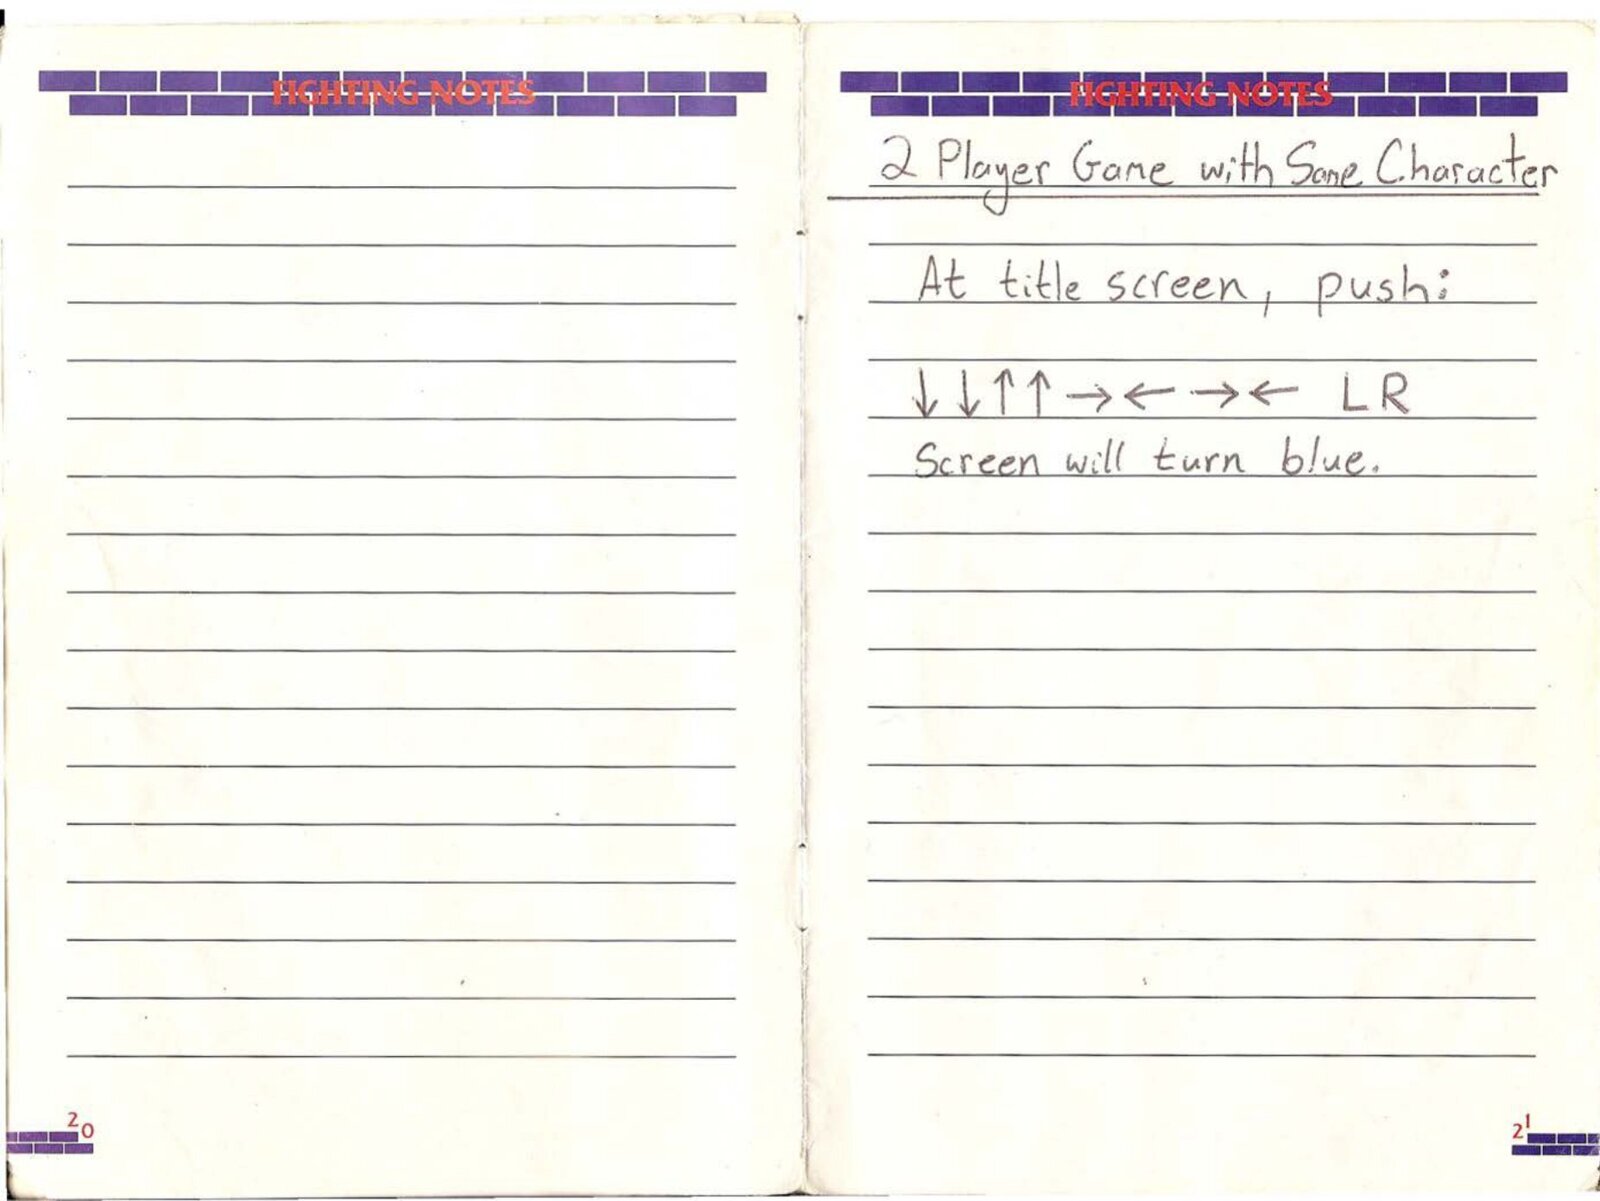 FIGHTING NOTES
20
FIGHTING NOTES
2 Player Game with Same Character
At title screen, push:
↓ ↓ ↑ ↑ → ← → ← L R
Screen will turn blue.
21